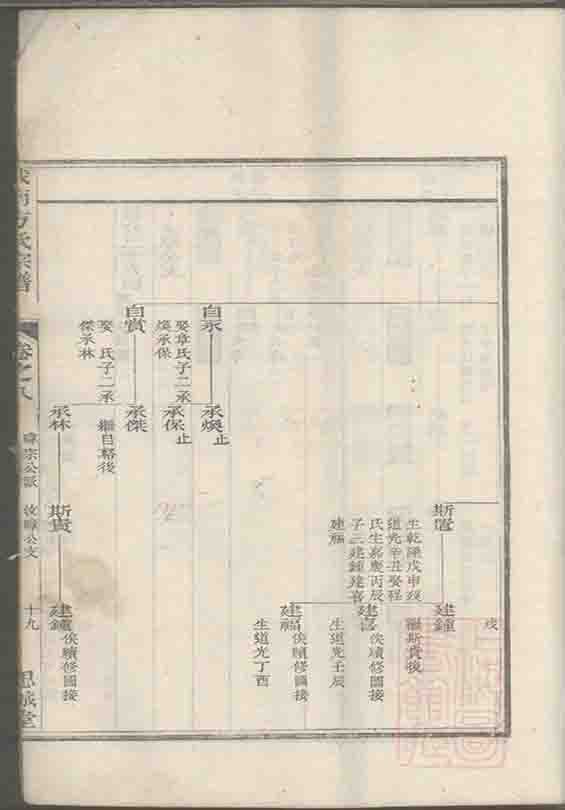 歿
斯置
生乾隆戊申歿
道光辛丑娶程
氏生嘉慶丙辰
子三建鍾建喜
建福
建鍾
繼斯貴後
建喜
俟續修圖接
生道光壬辰
建福
俟續修圖接
生道光丁酉
自永
娶章氏子二承
煥承保
承煥
止
承保
止
自賞
娶 氏子二承
傑承林
承傑
繼自輅後
承林
斯貴
建鍾
俟續修圖接
方氏宗譜
卷之八
暐宗公派
汝暐公支
十九
思誠堂